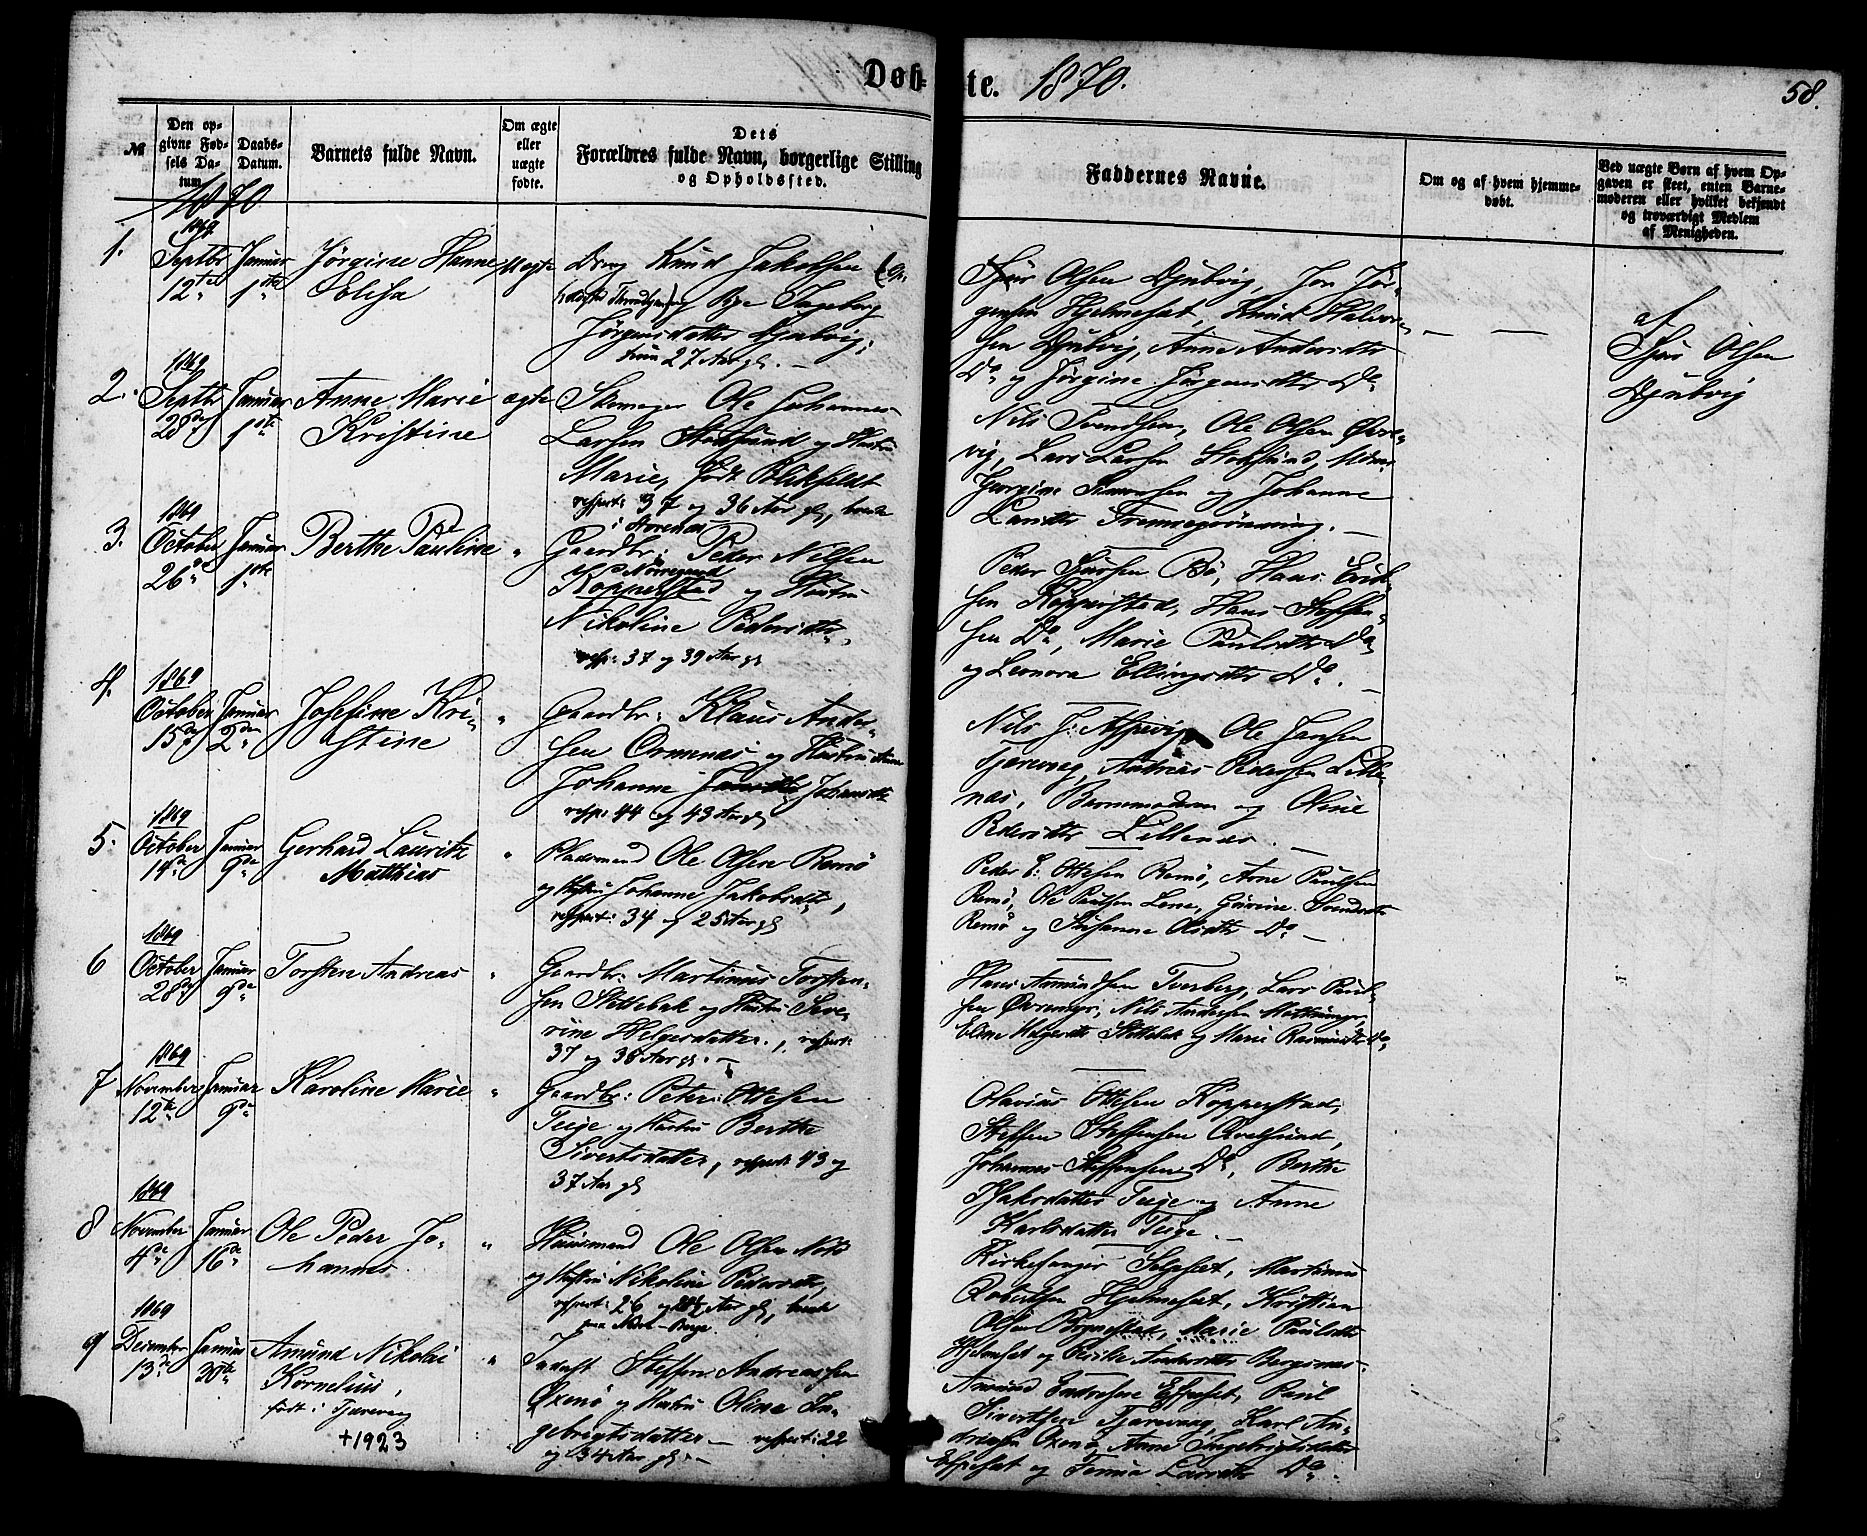 Døbte. 1870.
58.
№
Den opgivne Fødsels Datum.
Daabs-Datum.
Barnets fulde Navn.
Om ægte eller uægte fødte.
Dets Forældres fulde Navn, borgerlige Stilling og Opholdssted.
Faddernes Navne.
Om og af hvem hjemmedøbt.
Ved uægte Børn af hvem Opgaven er skeet, enten Barnemoderen eller hvilket bekjendt og troværdigt Medlem af Menigheden.
1870
1. 1869 Septbr 12te Januar 1ste Jørgine Hanne Elisa uægte
Dreng Knud Jakobsen
og Pige Ingeborg
Jørgensdatter Djubvig,
hun 27 Aar gl. –
Sjur Olsen Djubvig, Jon Jør-
gensen Hjelmeset, Knud Halvor-
sen Djubvig, Anne Andersdtr
Do og Jørgine Jørgensdtr Do
af
Sjur Olsen
Djubvig
2. 1869 Septbr 28de Januar 1ste Anne Marie Kristine ægte
Skomager Ole Johannes
Larsen Stoksund og Hustru
Marie, født Blikfeldt
respert: 37 og 36 Aar gl,
Nils Svendsen, Ole Olsen Øvre-
vig, Lars Larsen Stoksund,
Georgine Simonsen og Johanne
Larsdtr
3. 1869 October 26de Januar 1ste Berthe Pauline "
i Storenas
Gaardbr: Peder Nilsen
Kopperstad og Hustru
Nikoline Pedersdtr,
resp: 37 og 39 Aar gl
Peder Sjursen Bø, Hans Erik-
sen Kopperstad, Hans Steffen-
sen Do, Marie Paulsdtr Do
og Leonora Ellingsdtr Do. –
4. 1869 October 15de Januar 2den Josefine Kri-
stine "
Gaardbr: Klaus Ander-
sen Ormenas og Hustru Anne
Johanne Johansdtr
resp: 44 og 43 Aar gl
Nils J: Aspevig, Ole Jansen
Tjærevaag, Andreas Pedersen Lille-
nas, Barnemoderen og Oline
Pedersdtr Lillenas. –
5. 1869 October 14de Januar 9de Gerhard Lauritz
Matthias "
Pladsmand Ole Olsen Remø
og Hustru Johanne Jakobsdtr,
respert: 34 og 25 Aar gl
Peder E: Ottesen Remø, Arne Paulsen
Remø, Ole Paulsen Lene, Gurine Svendsdtr
Remø og Susanne Olsdtr Do –
6 1869 October 28de Januar 9de Torsten Andreas "
Gaardbr: Martinus Torsten-
sen Stettebak og Hustru Seve-
rine Helgesdatter, respert:
37 og 38 Aar gl. –
Hans Amundsen Tverberg, Lars Paul-
sen, Nils Andersen
Eline Helgesdtr Stettebak og Marie Rasmusdtr Do
7 1869 November 12te Januar 9de Karoline Marie "
Gaardbr: Peter Ottesen
Teige og Hustru Berthe
Sivertsdatter, respert: 43 og
37 Aar gl
Olavius Ottesen Kopperstad,
Steffen Steffensen Qvalsund,
Johannes Steffensen Do, Berthe
Isaksdatter Teige og Anne
Karlsdatter Teige –
8 1869 November 4de Januar 16de Ole Peder Jo-
hannes "
Huusmand Ole Olsen
og Hustru Nikoline Pedersdtr,
respert: 26 og Aar gl,
Kirkesanger Selgeset, Martinus
Robertsen Hjelmeset, Kristian
Olsen Bognestad, Marie Paulsdtr
Hjelmeset og Andersdtr Bergsnes.
9 1869 December 13de Januar 30te Amund Nikolai
Kornelius,
født i Tjærevaag
+1923 "
Indust Steffen Andreassen
Øxenø og Hustru Oline In-
gebrigtsdatter – respert: 22
og 34 Aar gl. –
Amund Endresen Espeset, Paul
Sivertsen Tjærevaag, Karl An-
dreasen Oxenø, Anne Ingebrigtsdatter
Espeset og Larsdtr Do